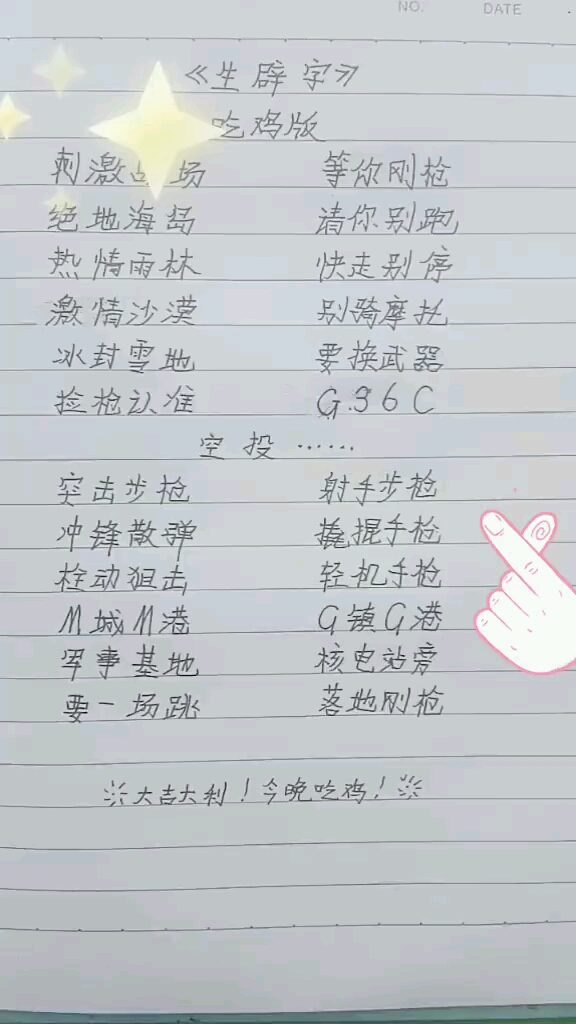 NO. DATE
《生辟字》
吃鸡版
刺激 场 等你刚枪
绝地海岛 请你别跑
热情雨林 快走别停
激情沙漠 别骑摩托
冰封雪地 要换武器
捡枪认准 G36C
空投……
突击步枪 射手步枪
冲锋散弹 撬棍手枪
栓动狙击 轻机手枪
M城M港 G镇G港
军事基地 核电站旁
要一场跳 落地刚枪
大吉大利！今晚吃鸡！